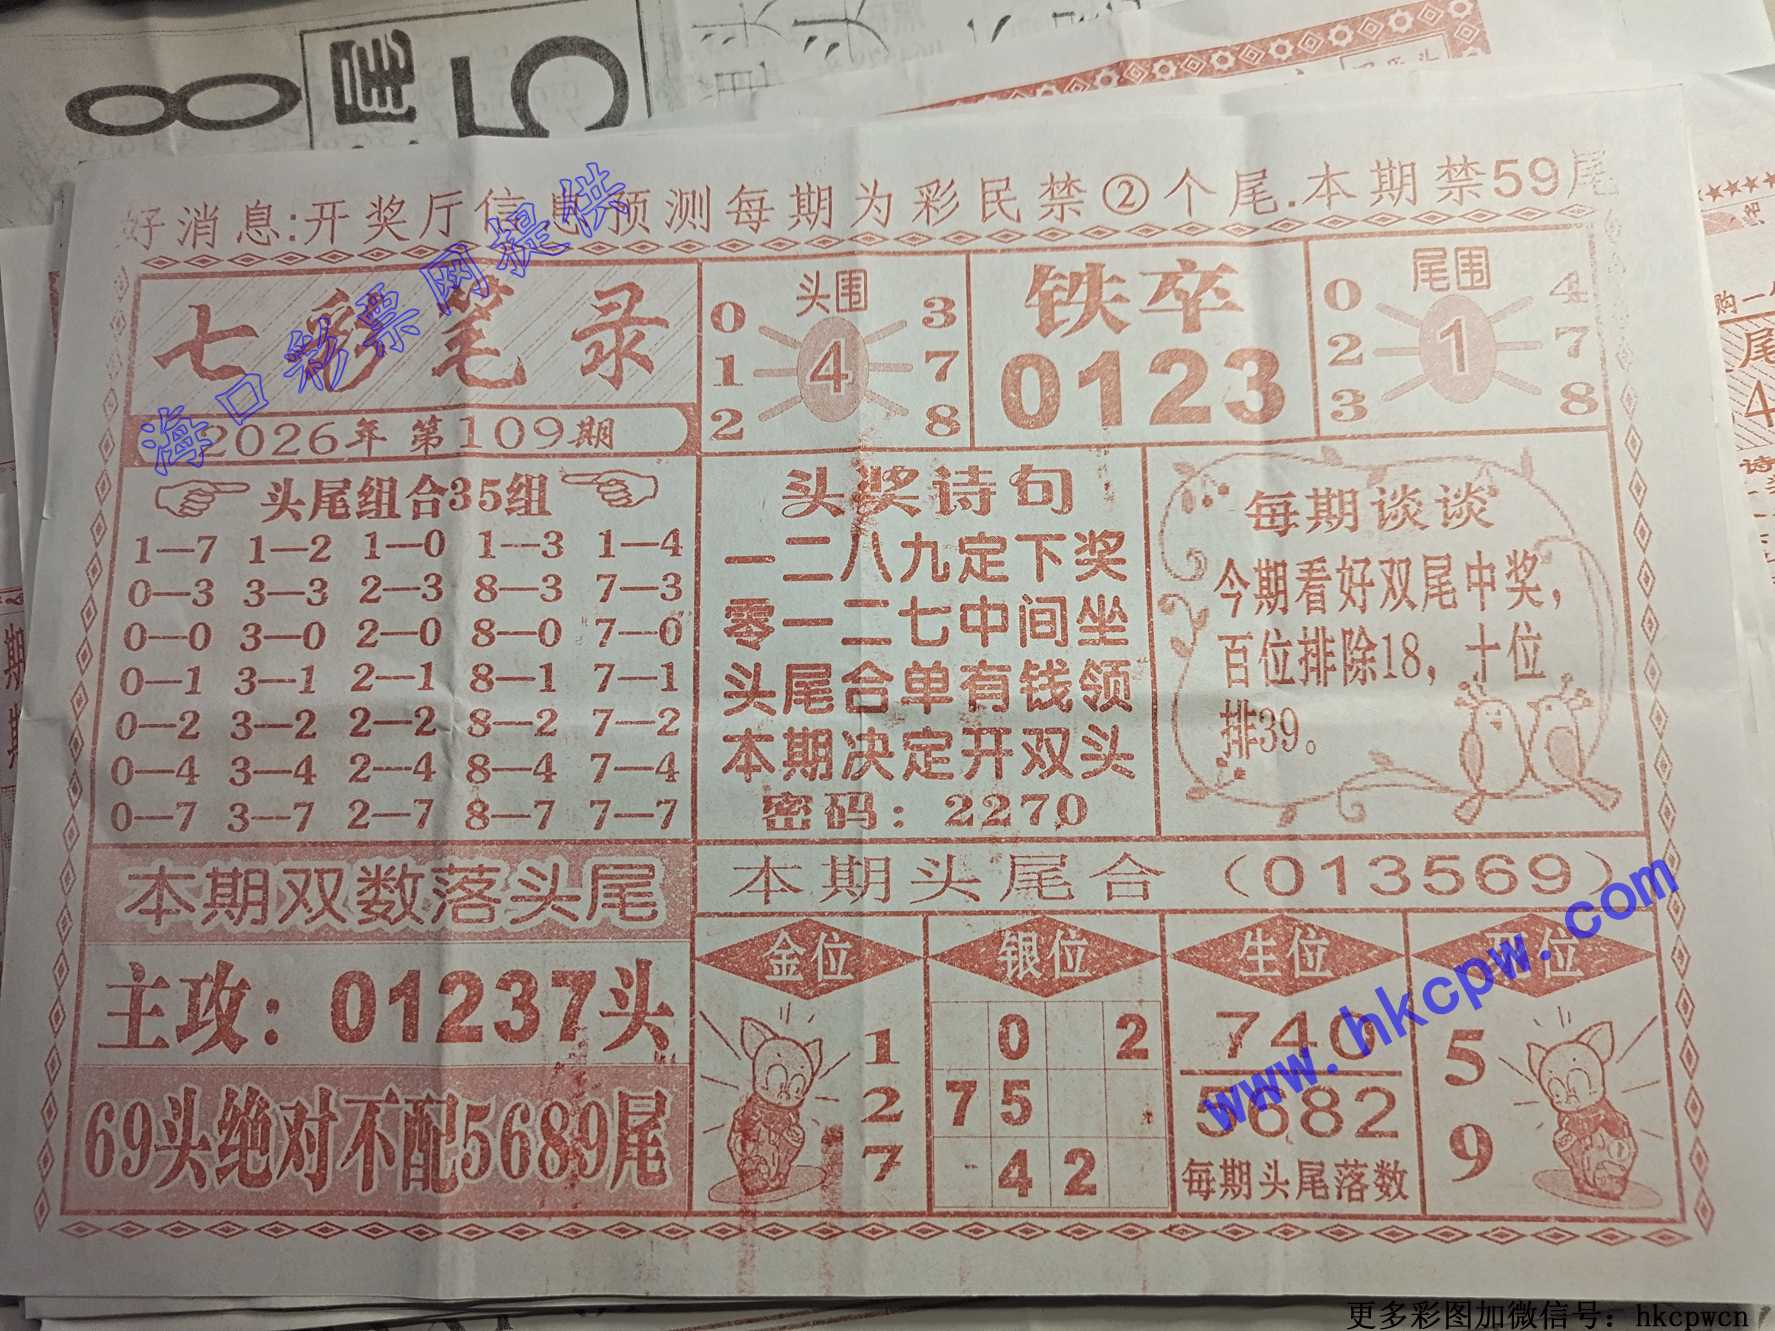 8
尾
5
好消息:开奖厅信息预测每期为彩民禁②个尾.本期禁59尾
海口彩票网提供
七彩笔录
2026年 第109期
头围
0 3
1 4 7
2 8
铁卒
0123
尾围
0 4
2 1 7
3 8
头尾组合35组
1—7 1—2 1—0 1—3 1—4
0—3 3—3 2—3 8—3 7—3
0—0 3—0 2—0 8—0 7—0
0—1 3—1 2—1 8—1 7—1
0—2 3—2 2—2 8—2 7—2
0—4 3—4 2—4 8—4 7—4
0—7 3—7 2—7 8—7 7—7
头奖诗句
一二八九定下奖
零一二七中间坐
头尾合单有钱领
本期决定开双头
密码：2270
每期谈谈
今期看好双尾中奖，
百位排除18，十位
排39。
本期双数落头尾
主攻：01237头
69头绝对不配5689尾
本期头尾合（013569）
金位
1
2
7
银位
0 2
7 5
4 2
生位
740
5682
每期头尾落数
位
5
9
www.hkcpw.com
更多彩图加微信号：hkcpwcn